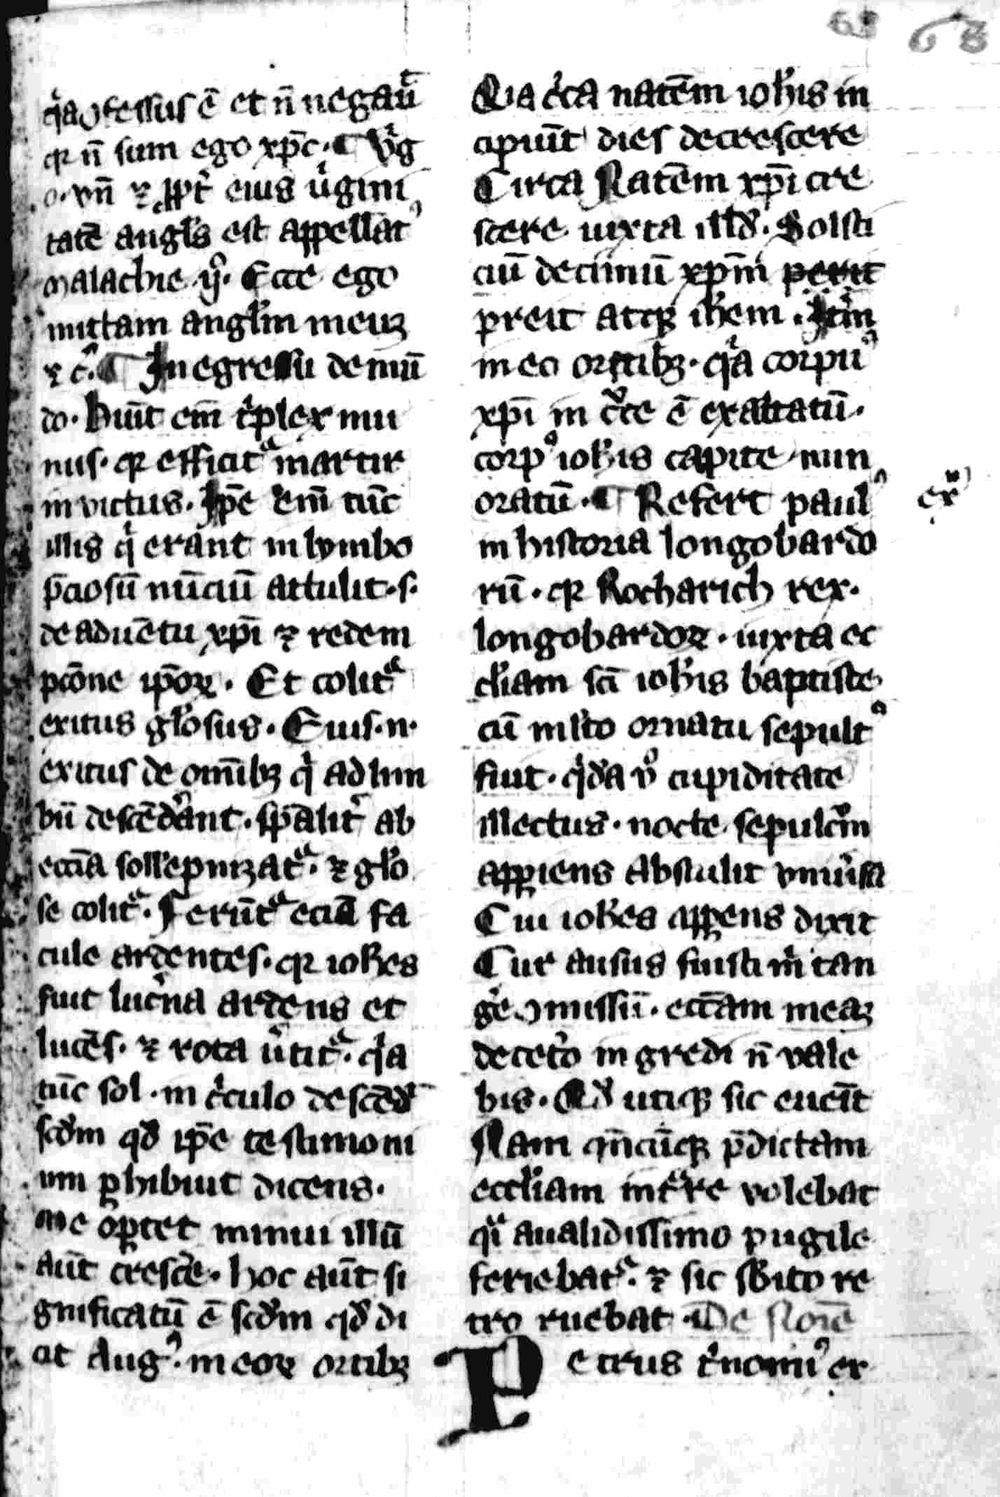 68 68
q̃a ꝯfessus ē et n̄ negauͭ
qꝛ n̄ sum ego xp̄c · ¶ Vͥg
o · vn̄ ⁊ ꝓpt̾ eius uͥgini
tatē angl̾s est appellatꝰ
malachie · ijͦ · Ecce ego
mittam angl̾m meuꝫ
⁊ cͣ · ¶ In egressu de mū
do · huit em̄ tͥplex mu
nus · qꝛ efficitᷣ martir
inuictus · Ip̄e em̄ tūc
illis qͥ erant in lymbo
p̄ciosū nūciū attulit · s ·
de aduētu xp̄i ⁊ redem
pcōne ip̄oꝝ · Et colitᷣ
exitus gl̾osus · Euis · n ·
exitus de om̄ibꝫ qͥ ad lim
bū descēd̾ant · sp̄alit̾ ab
eccīa sollēpnizatᷣ · ⁊ gl̾o
se colitᷣ · Ferūtᷣ eciā fa
cule ardentes · qꝛ ioħes
fuit luc̾na ardens et
lucēs · ⁊ rota u̾titᷣ · qͥa
tūc sol · in cͥculo descēd̾
scd̾m qd̾ ip̄e testimoni
um ꝑhibuit dicens ·
me oꝑtet minui illū
aūt cresc̾e · hoc aūt si
gnificatū ē scd̾m qd̾ di
cit Augꝰ · in eoꝝ ortibꝫ
Q̾a cͥca natēm ioħis in
cipiūt dies decrescere
Circa Natēm xp̄i cre
scere iuxta ill̾d · Solsti
ciū decimū xp̄m p̾it
preit atqꝫ ioħem · Itē
in eoꝝ ortibꝫ · qͥa corpus
xp̄i in cͨce ē exaltatū ·
corpꝰ ioħis capite min
oratū · ¶ Refert paulꝰ
ex̾
in historia longobardo
rū · qꝛ Rocharich rex ·
longobardoꝝ · iuxta ec
cl̾iam sc̄i ioħis baptiste
cū ml̾to ornatu sepultꝰ
fuit · qͥdā uͦ cupiditate
illectus · nocte sepulc̾m
apꝑiens abstulit uniu̾sa
Cui ioħes apꝑens dixit
Cur ausus fuisti m̾ tan
g̾e ꝯmissū · eccīam meaꝫ
decet̾o ingredi n̄ vale
bis · Qd̾ utiqꝫ sic euēit
Nam qn̄cūqꝫ p̄dictam
eccl̾iam intͣre volebat
qͣi a ualidissimo pugile
feriebatᷣ · ⁊ sic sb̾ito re
tro ruebat De noīe
Petrus tͥnomiꝰ er